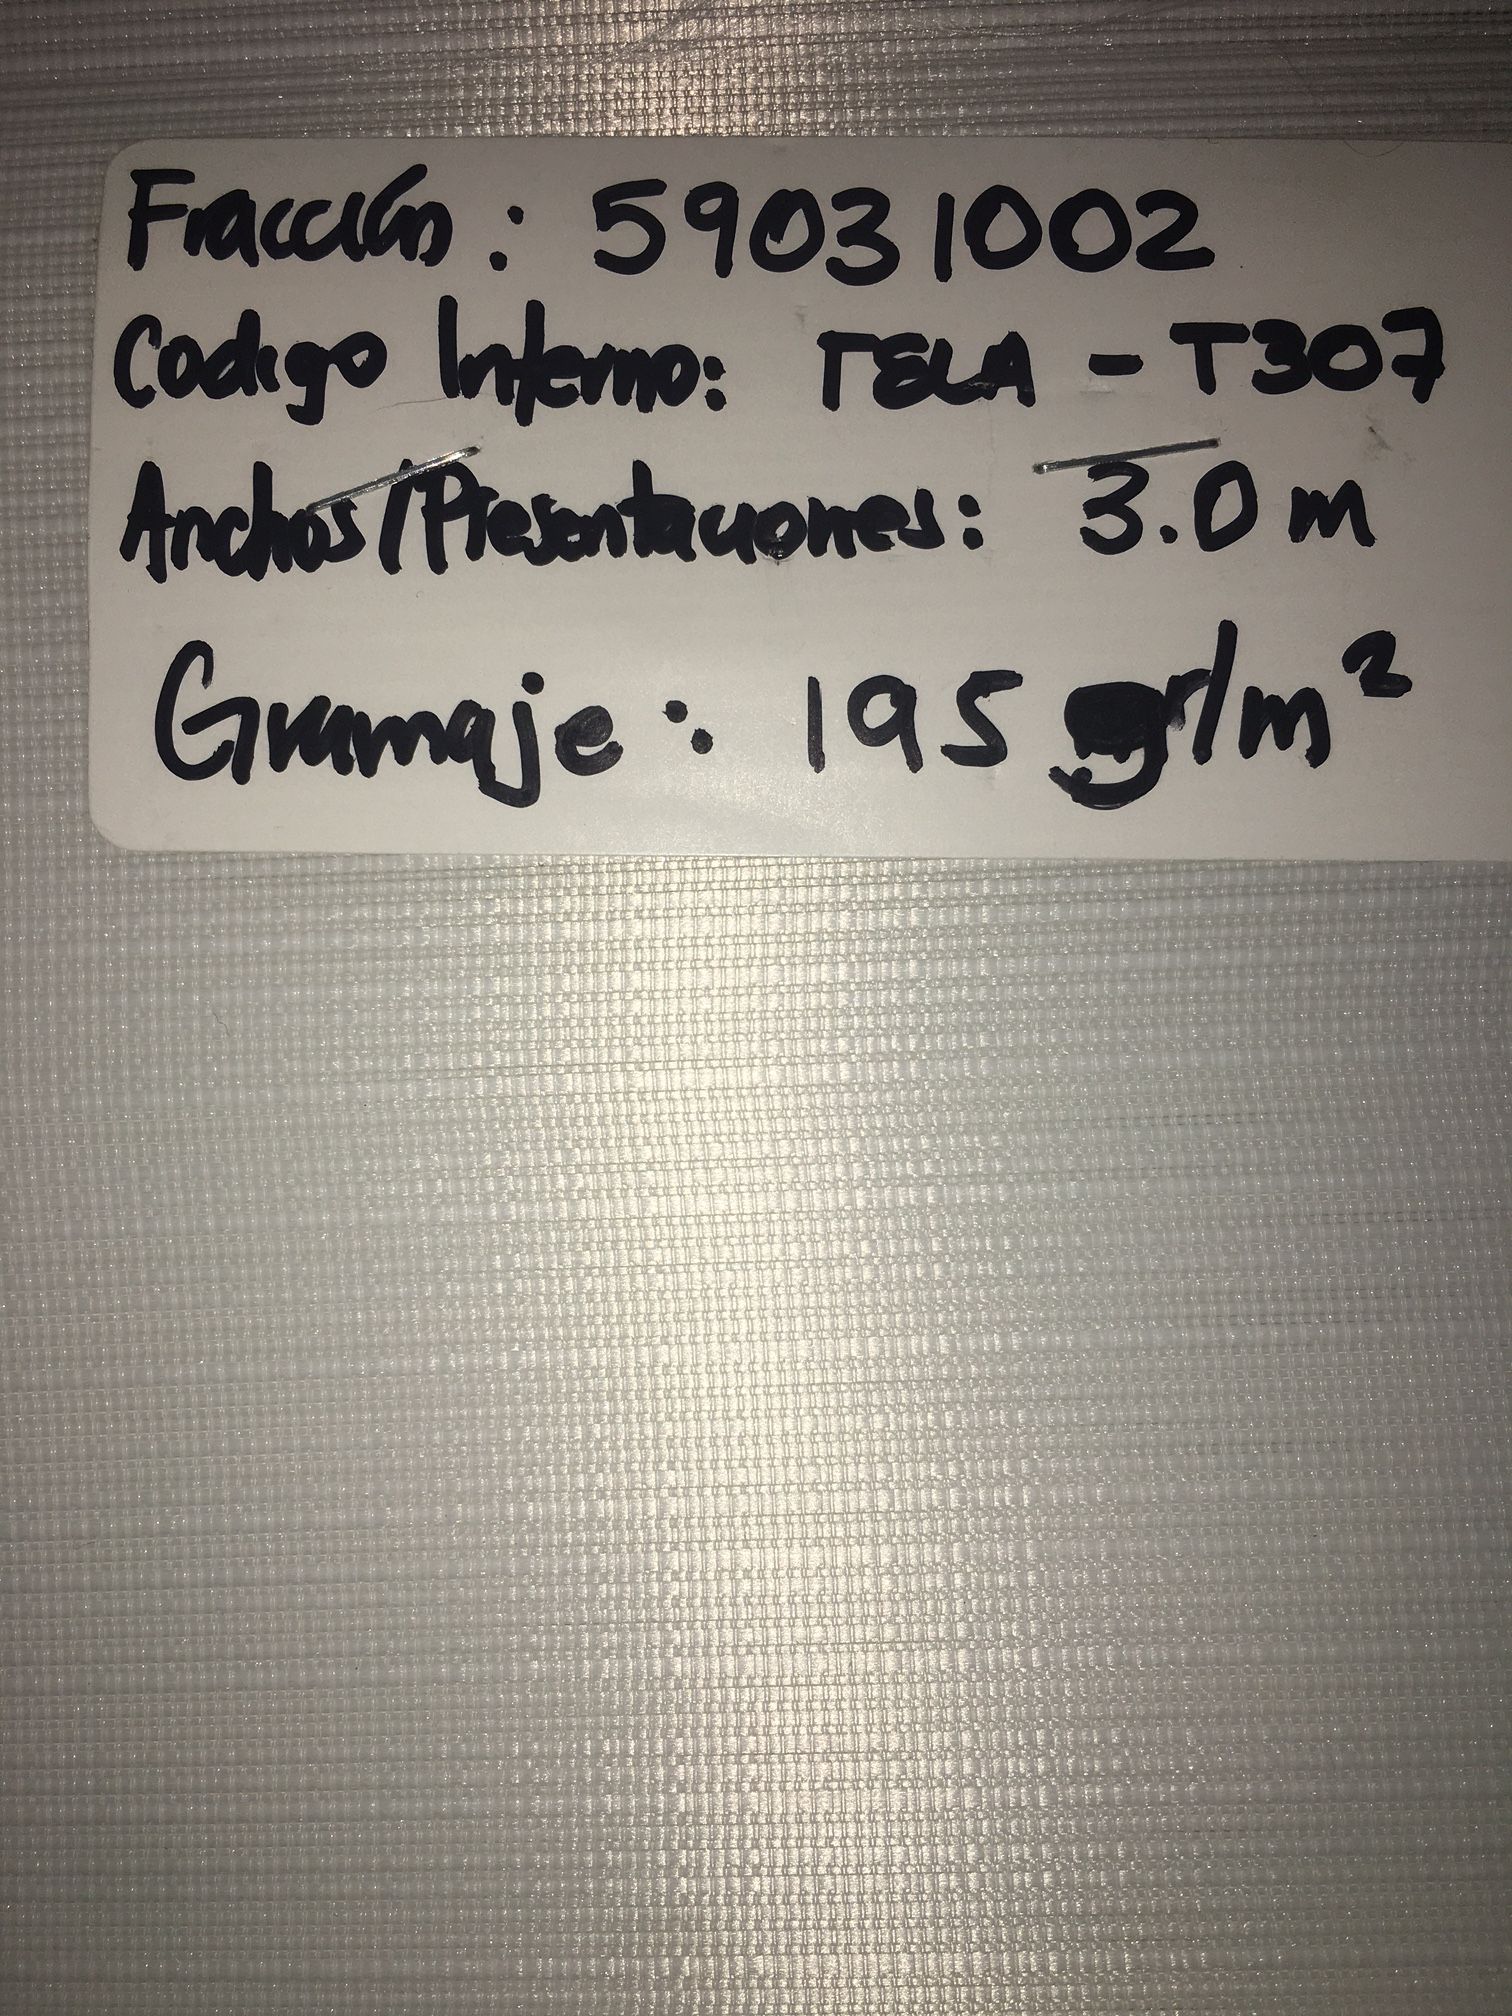 Fracción: 59031002
Codigo Interno: TELA - T307
Anchos/Presentaciones: 3.0 m
Gramaje: 195 gr/m²